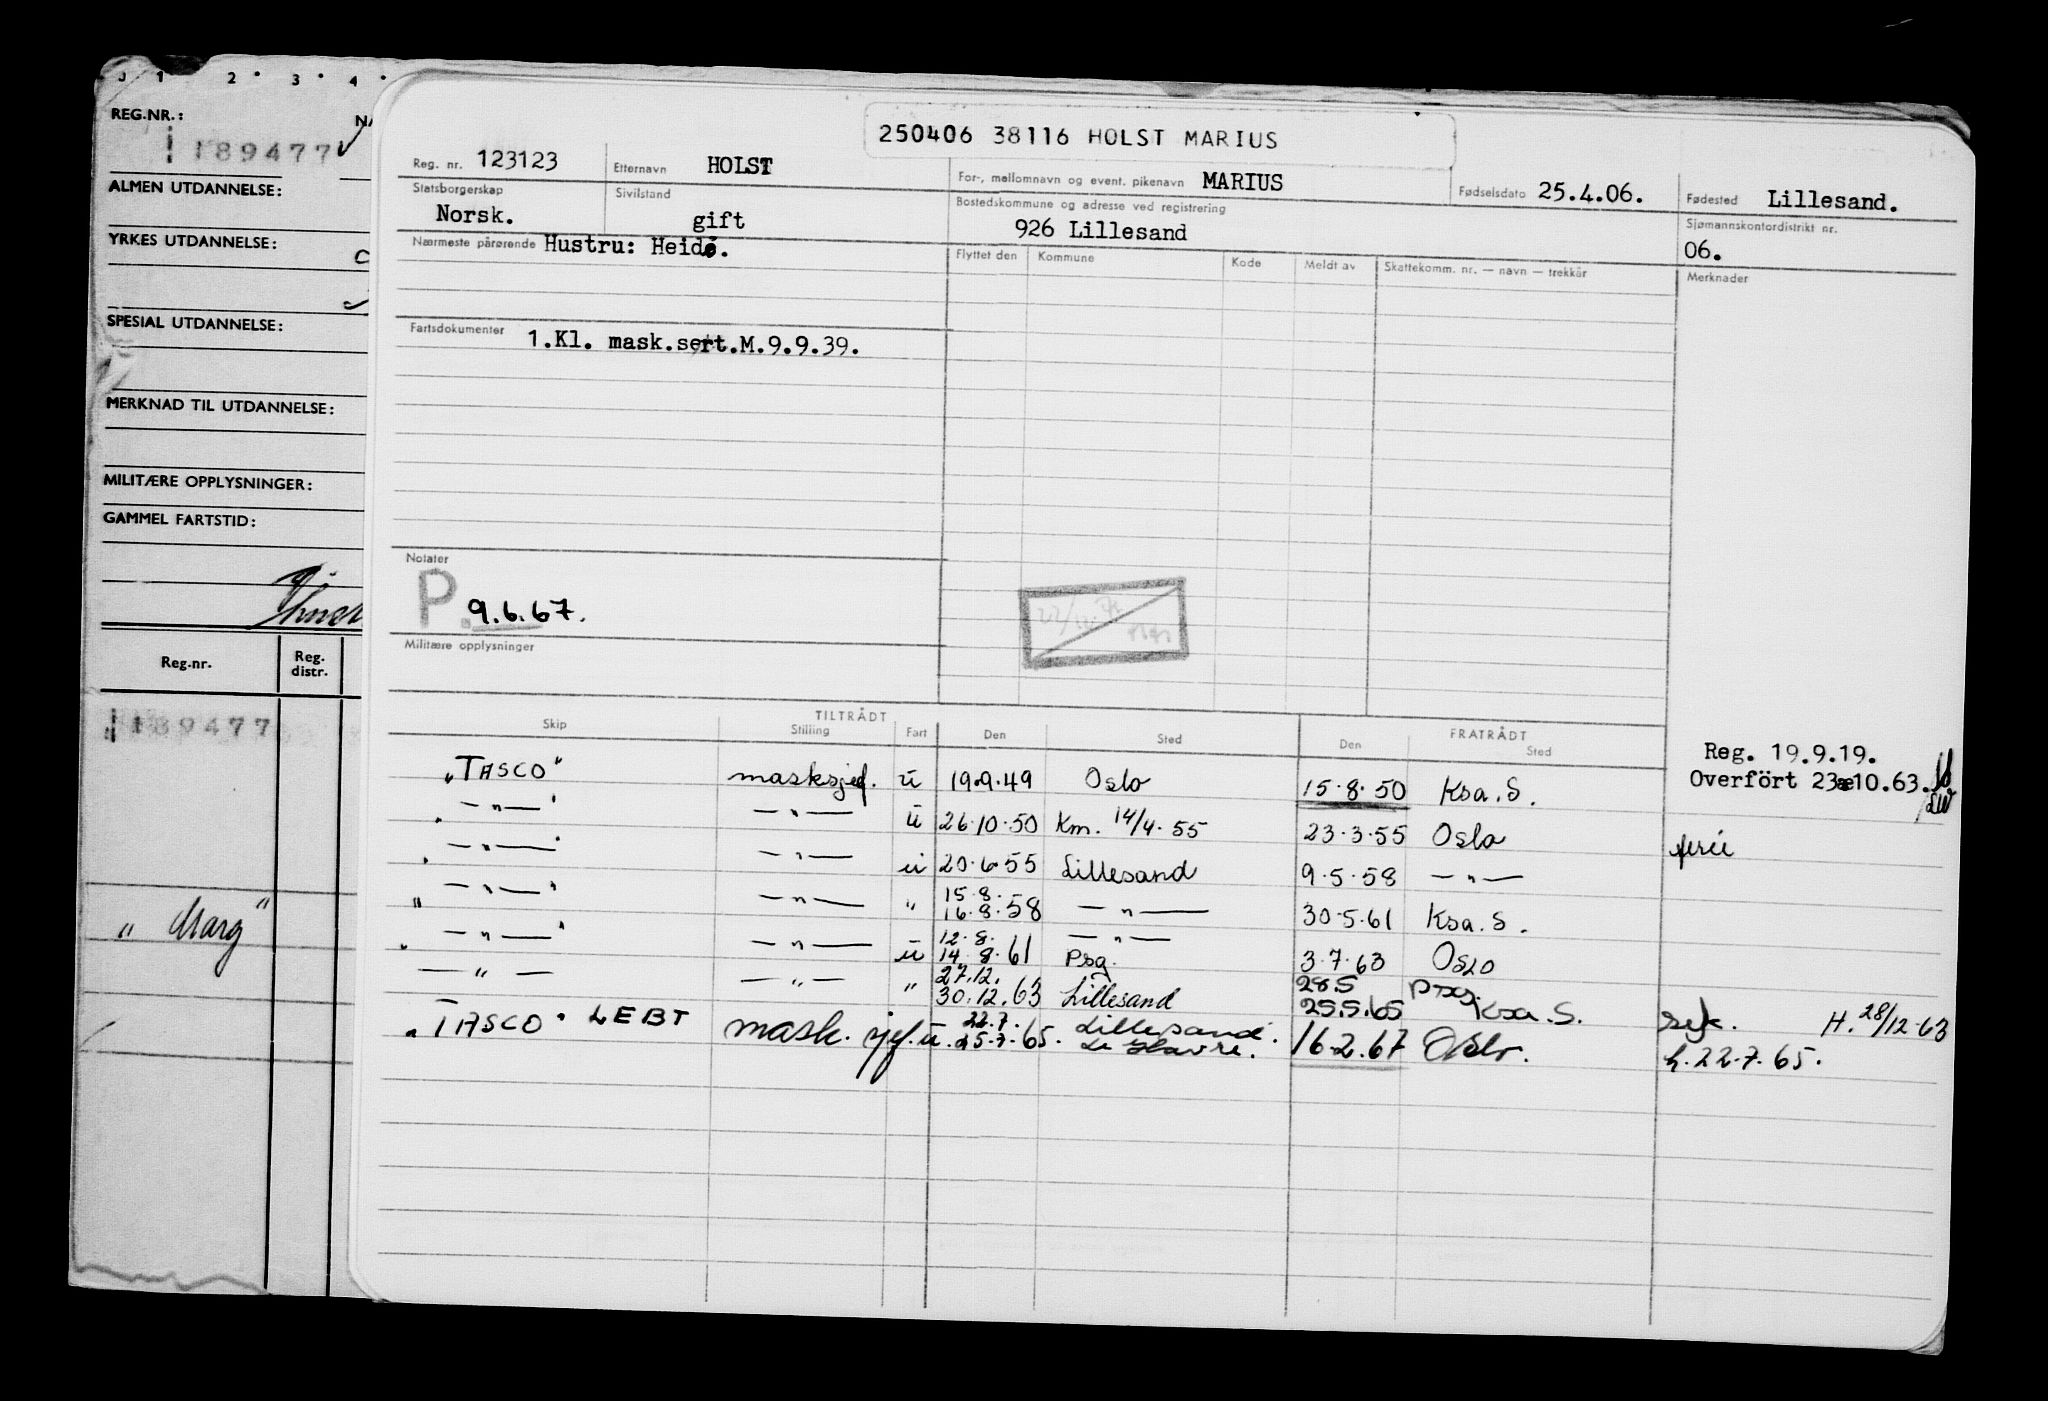 J 1 2 3 4
REG.NR.:
189477
ALMEN UTDANNELSE:
YRKES UTDANNELSE:
SPESIAL UTDANNELSE:
MERKNAD TIL UTDANNELSE:
MILITÆRE OPPLYSNINGER:
GAMMEL FARTSTID:
Reg.nr. Reg. distr.
189477
" Marg "
250406 38116 HOLST MARIUS
Reg. nr. 123123 Etternavn HOLST For-, mellomnavn og event. pikenavn MARIUS Fødselsdato 25.4.06. Fødested Lillesand.
Statsborgerskap Norsk. Sivilstand gift Bostedskommune og adresse ved registrering 926 Lillesand Sjømannskontordistrikt nr. 06.
Nærmeste pårørende Hustru: Heidé. Flyttet den Kommune Kode Meldt av Skattekomm. nr. — navn — trekkår Merknader
Fartsdokumenter 1.Kl. mask.sert.M.9.9.39.
Notater
P. 9.6.67.
Militære opplysninger
TILTRÅDT FRATRÅDT
Skip Stilling Fart Den Sted Den Sted
Reg. 19.9.19.
Overført 23.10.63.
"TASCO" masksjef. u 19.9.49 Oslo 15.8.50 Ksa. S.
— " — — " — u 26.10.50 Km. 14/4.55 23.3.55 Oslo ferie
— " — — " — u 20.6.55 Lillesand 9.5.58 — " —
— " — — " — " 15.8. 16.8.58 — " — 30.5.61 Ksa. S.
— " — — " — u 12.8. 14.8.61 — " — Psg. 3.7.63 Oslo
— " — — " — " 27.12. 30.12.63 Lillesand 28.5 25.5.65 Psg. Ksa. S. syk. H. 28/12-63
"TASCO" LEBT mask. sjef. u. 22.7. 25.7.65. Lillesand. Le Havre. 16.2.67 Oslo. h. 22.7.65.